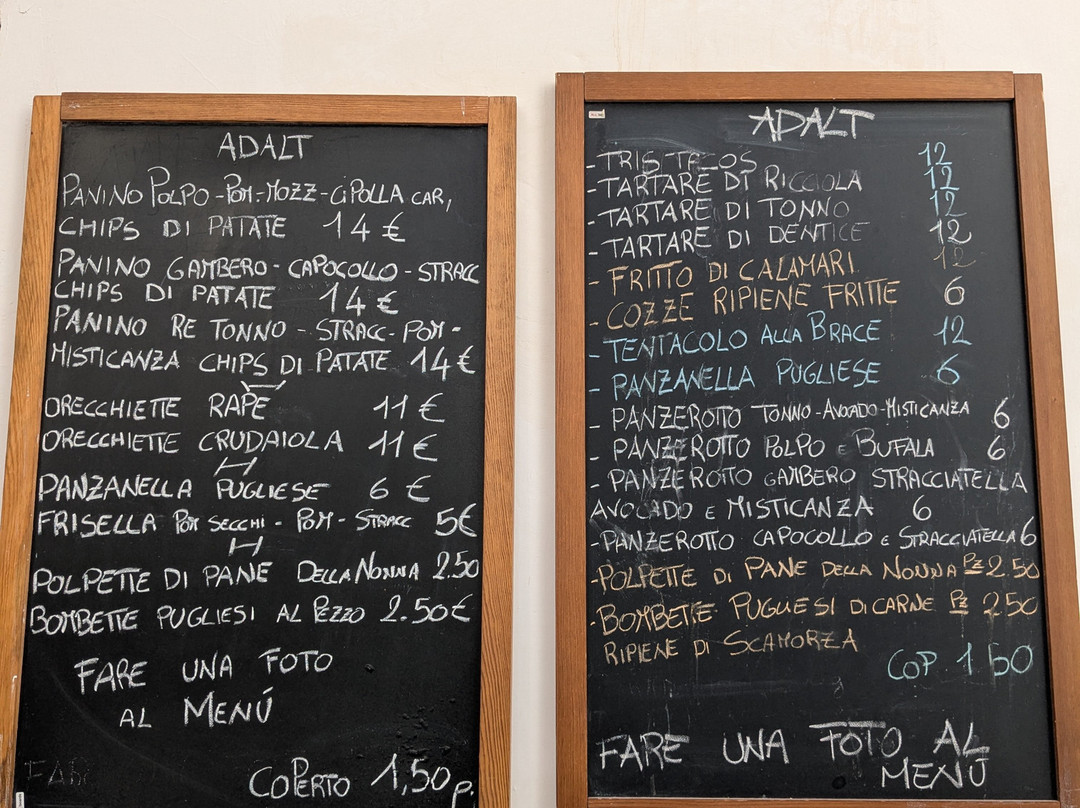 ADALT
PANINO POLPO - POM - MOZZ - CIPOLLA CAR,
CHIPS DI PATATE 14 €
PANINO GAMBERO - CAPOCOLLO - STRACC
CHIPS DI PATATE 14 €
PANINO RE TONNO - STRACC - POM -
MISTICANZA CHIPS DI PATATE 14 €
ORECCHIETTE RAPE 11 €
ORECCHIETTE CRUDAIOLA 11 €
PANZANELLA PUGLIESE 6 €
FRISELLA POM SECCHI - POM - STRACC 5€
POLPETTE DI PANE DELLA NONNA 2.50
BOMBETTE PUGLIESI AL PEZZO 2.50 €
FARE UNA FOTO
AL MENÚ
COPERTO 1,50 p.
ADALT
- TRIS TACOS 12
- TARTARE DI RICCIOLA 12
- TARTARE DI TONNO 12
- TARTARE DI DENTICE 12
- FRITTO DI CALAMARI 12
- COZZE RIPIENE FRITTE 6
- TENTACOLO ALLA BRACE 12
- PANZANELLA PUGLIESE 6
- PANZEROTTO TONNO - AVOCADO - MISTICANZA 6
- PANZEROTTO POLPO E BUFALA 6
- PANZEROTTO GAMBERO STRACCIATELLA
AVOCADO E MISTICANZA 6
- PANZEROTTO CAPOCOLLO E STRACCIATELLA 6
- POLPETTE DI PANE DELLA NONNA PZ 2.50
- BOMBETTE PUGLIESI DI CARNE PZ 2.50
RIPIENE DI SCAMORZA
COP 1.50
FARE UNA FOTO AL
MENÚ